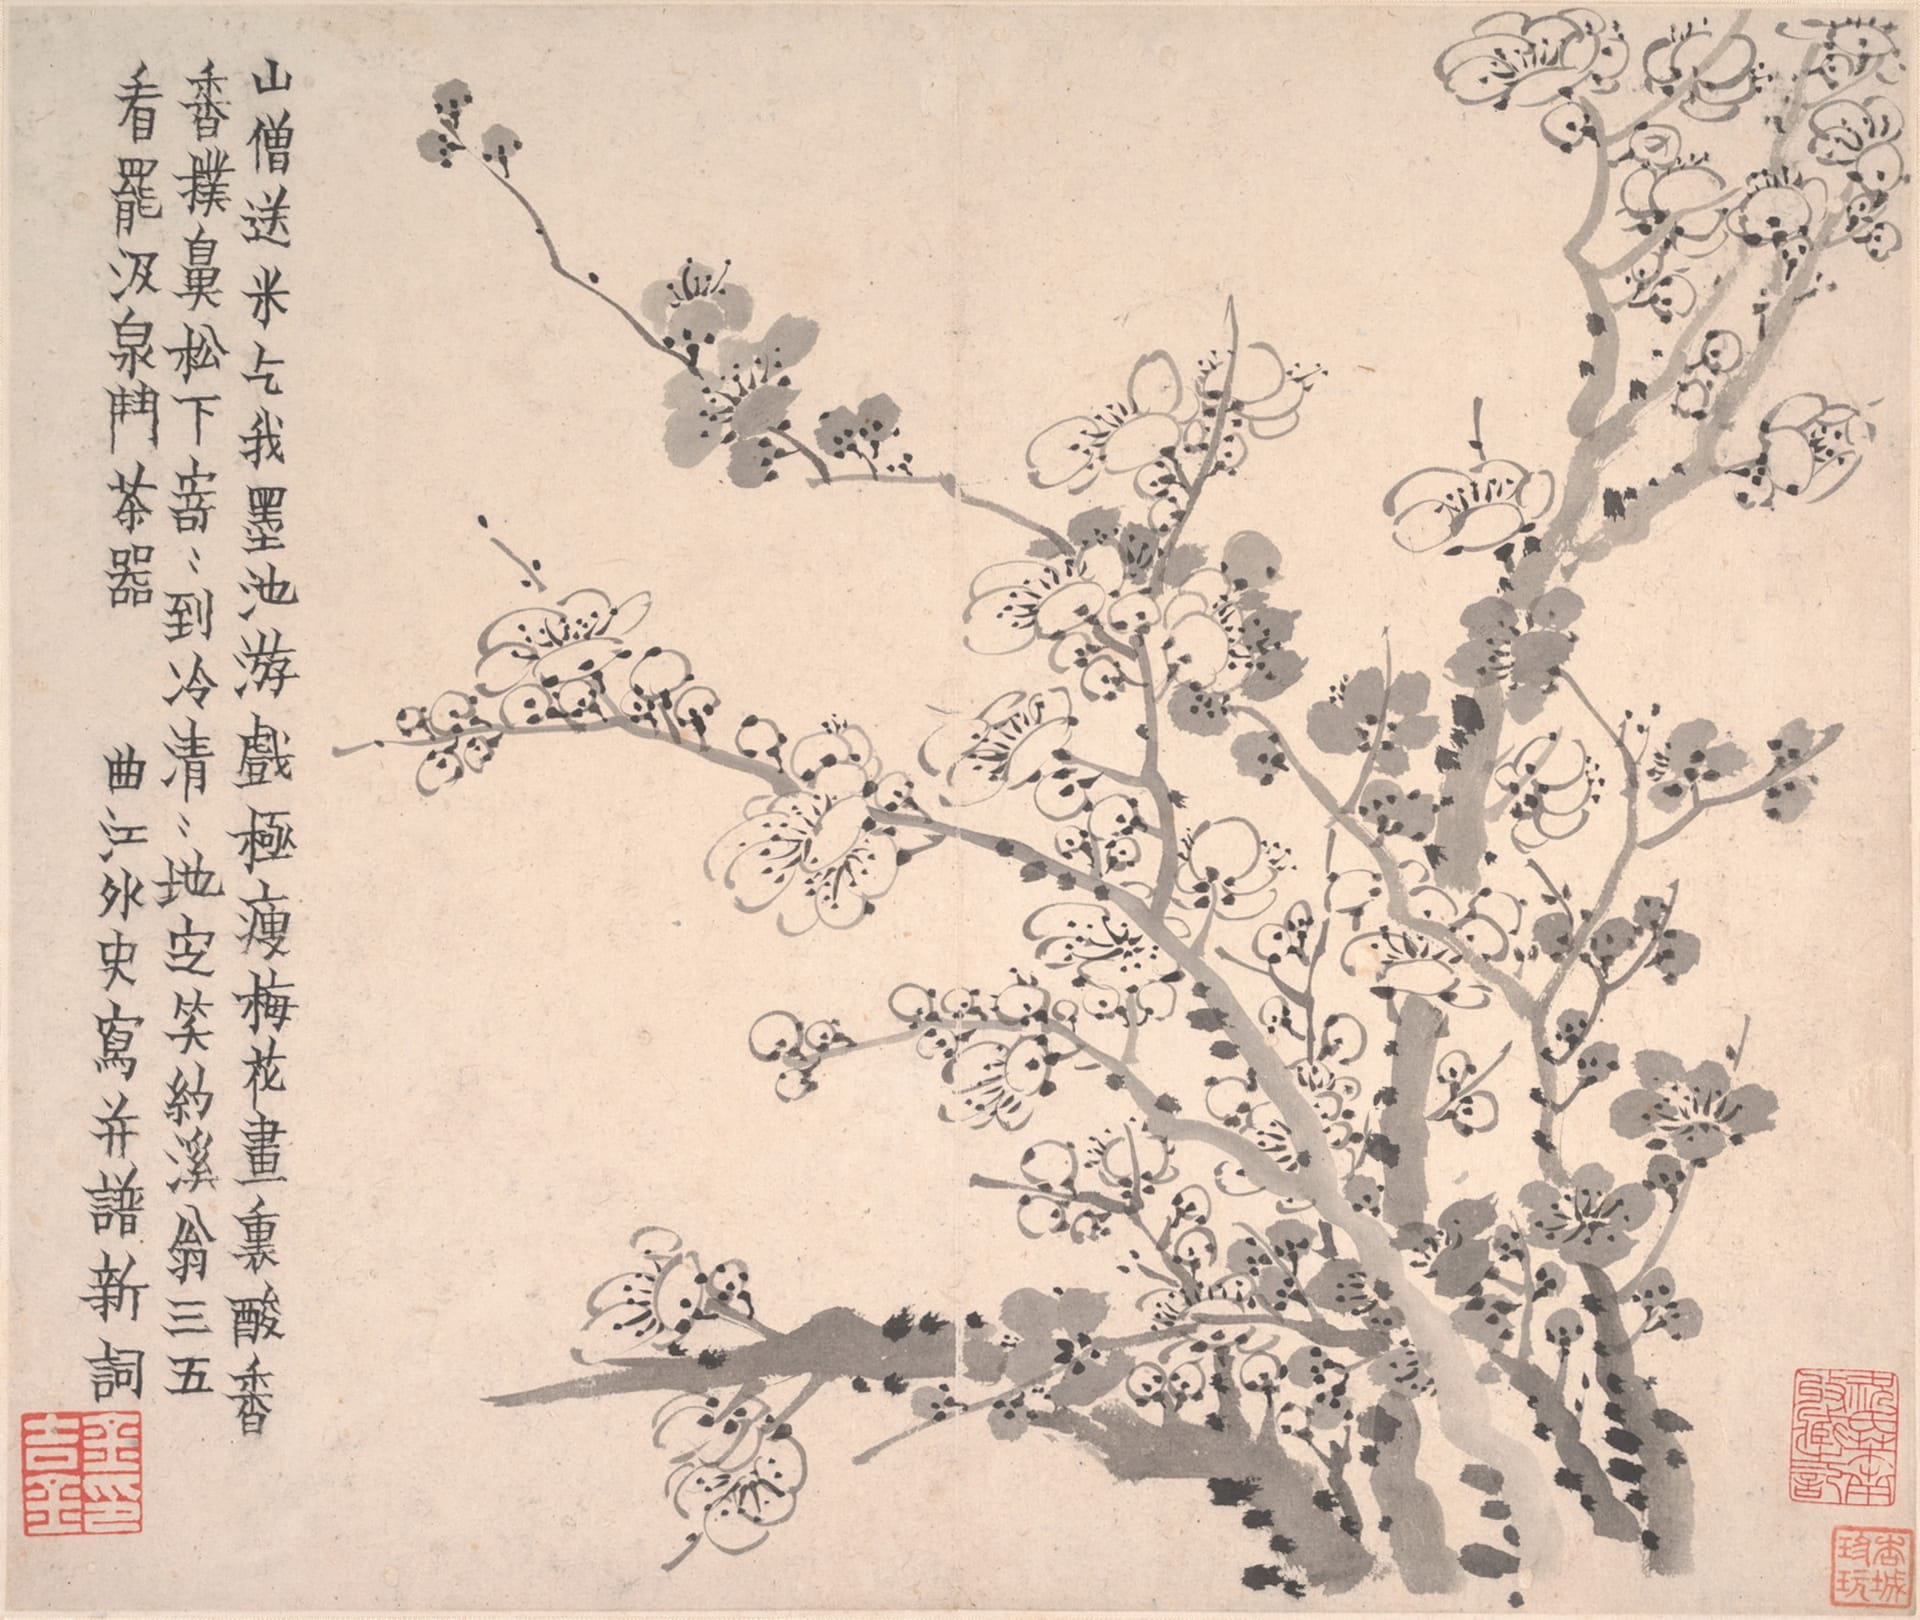 山僧送米乞我墨池游戲極瘦梅花畫裏酸香
香撲鼻松下寄〻到冷清〻地定笑約溪翁三五
看罷汲泉鬥茶器　曲江外史寫并譜新詞
金吉金印